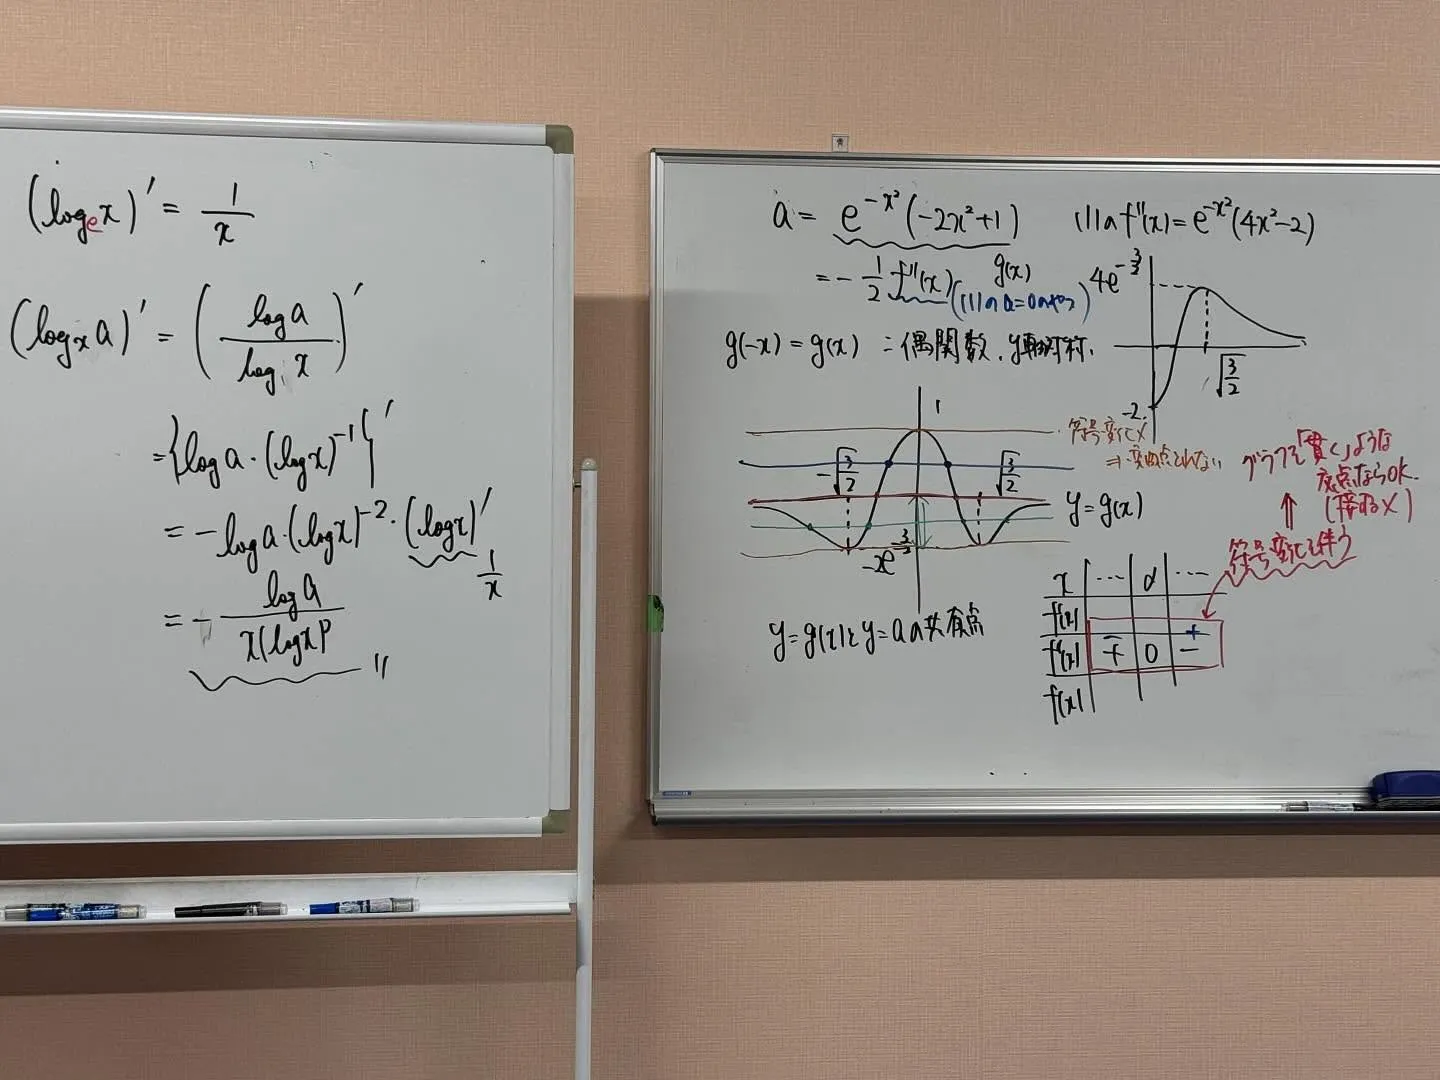 (logₑx)′ = 1/x
(logₓ a)′ = (log a / log x)′
= {log a・(log x)⁻¹}′
= −log a・(log x)⁻²・(log x)′
1/x
= − log a / x(log x)²
a = e^{-x²}(-2x²+1)
(1)の f″(x) = e^{-x²}(4x²-2)
= − 1/2 f″(x)
g(x)
((1)の a=0のとき)
g(-x) = g(x) ∴偶関数、y軸対称、
4e^{-3/2}
√3/2
-2
1
符号変化×
⇒変曲点とれない
-√3/2
√3/2
y = g(x)
-2e^{-3/2}
y=g(x)とy=aの共有点
グラフを「貫く」ような
点ならOK.
(接する×)
⇑
符号変化を伴う
x … α …
f′(x)
f″(x) ∓ 0 −
+
f(x)